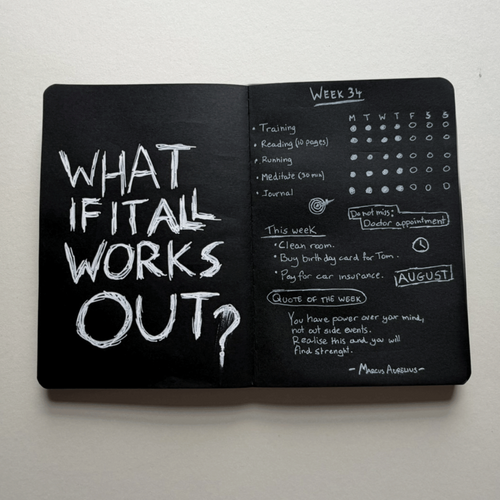 WHAT
IF IT ALL
WORKS
OUT?
WEEK 34
M T W T F S S
Training
Reading (10 pages)
Running
Meditate (30 min)
Journal
Do not miss:
Doctor appointment
This week
Clean room.
Buy birthday card for Tom.
Pay for car insurance.
AUGUST
QUOTE OF THE WEEK
You have power over your mind,
not out side events.
Realise this and you will
find strenght.
- MARCUS AURELIUS -